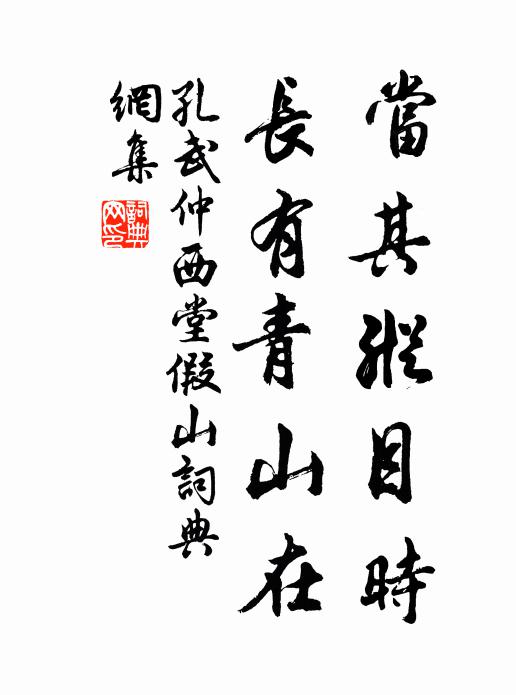 當其縱目時
長有青山在
孔武仲西堂假山詞典
網集
詞典
网印